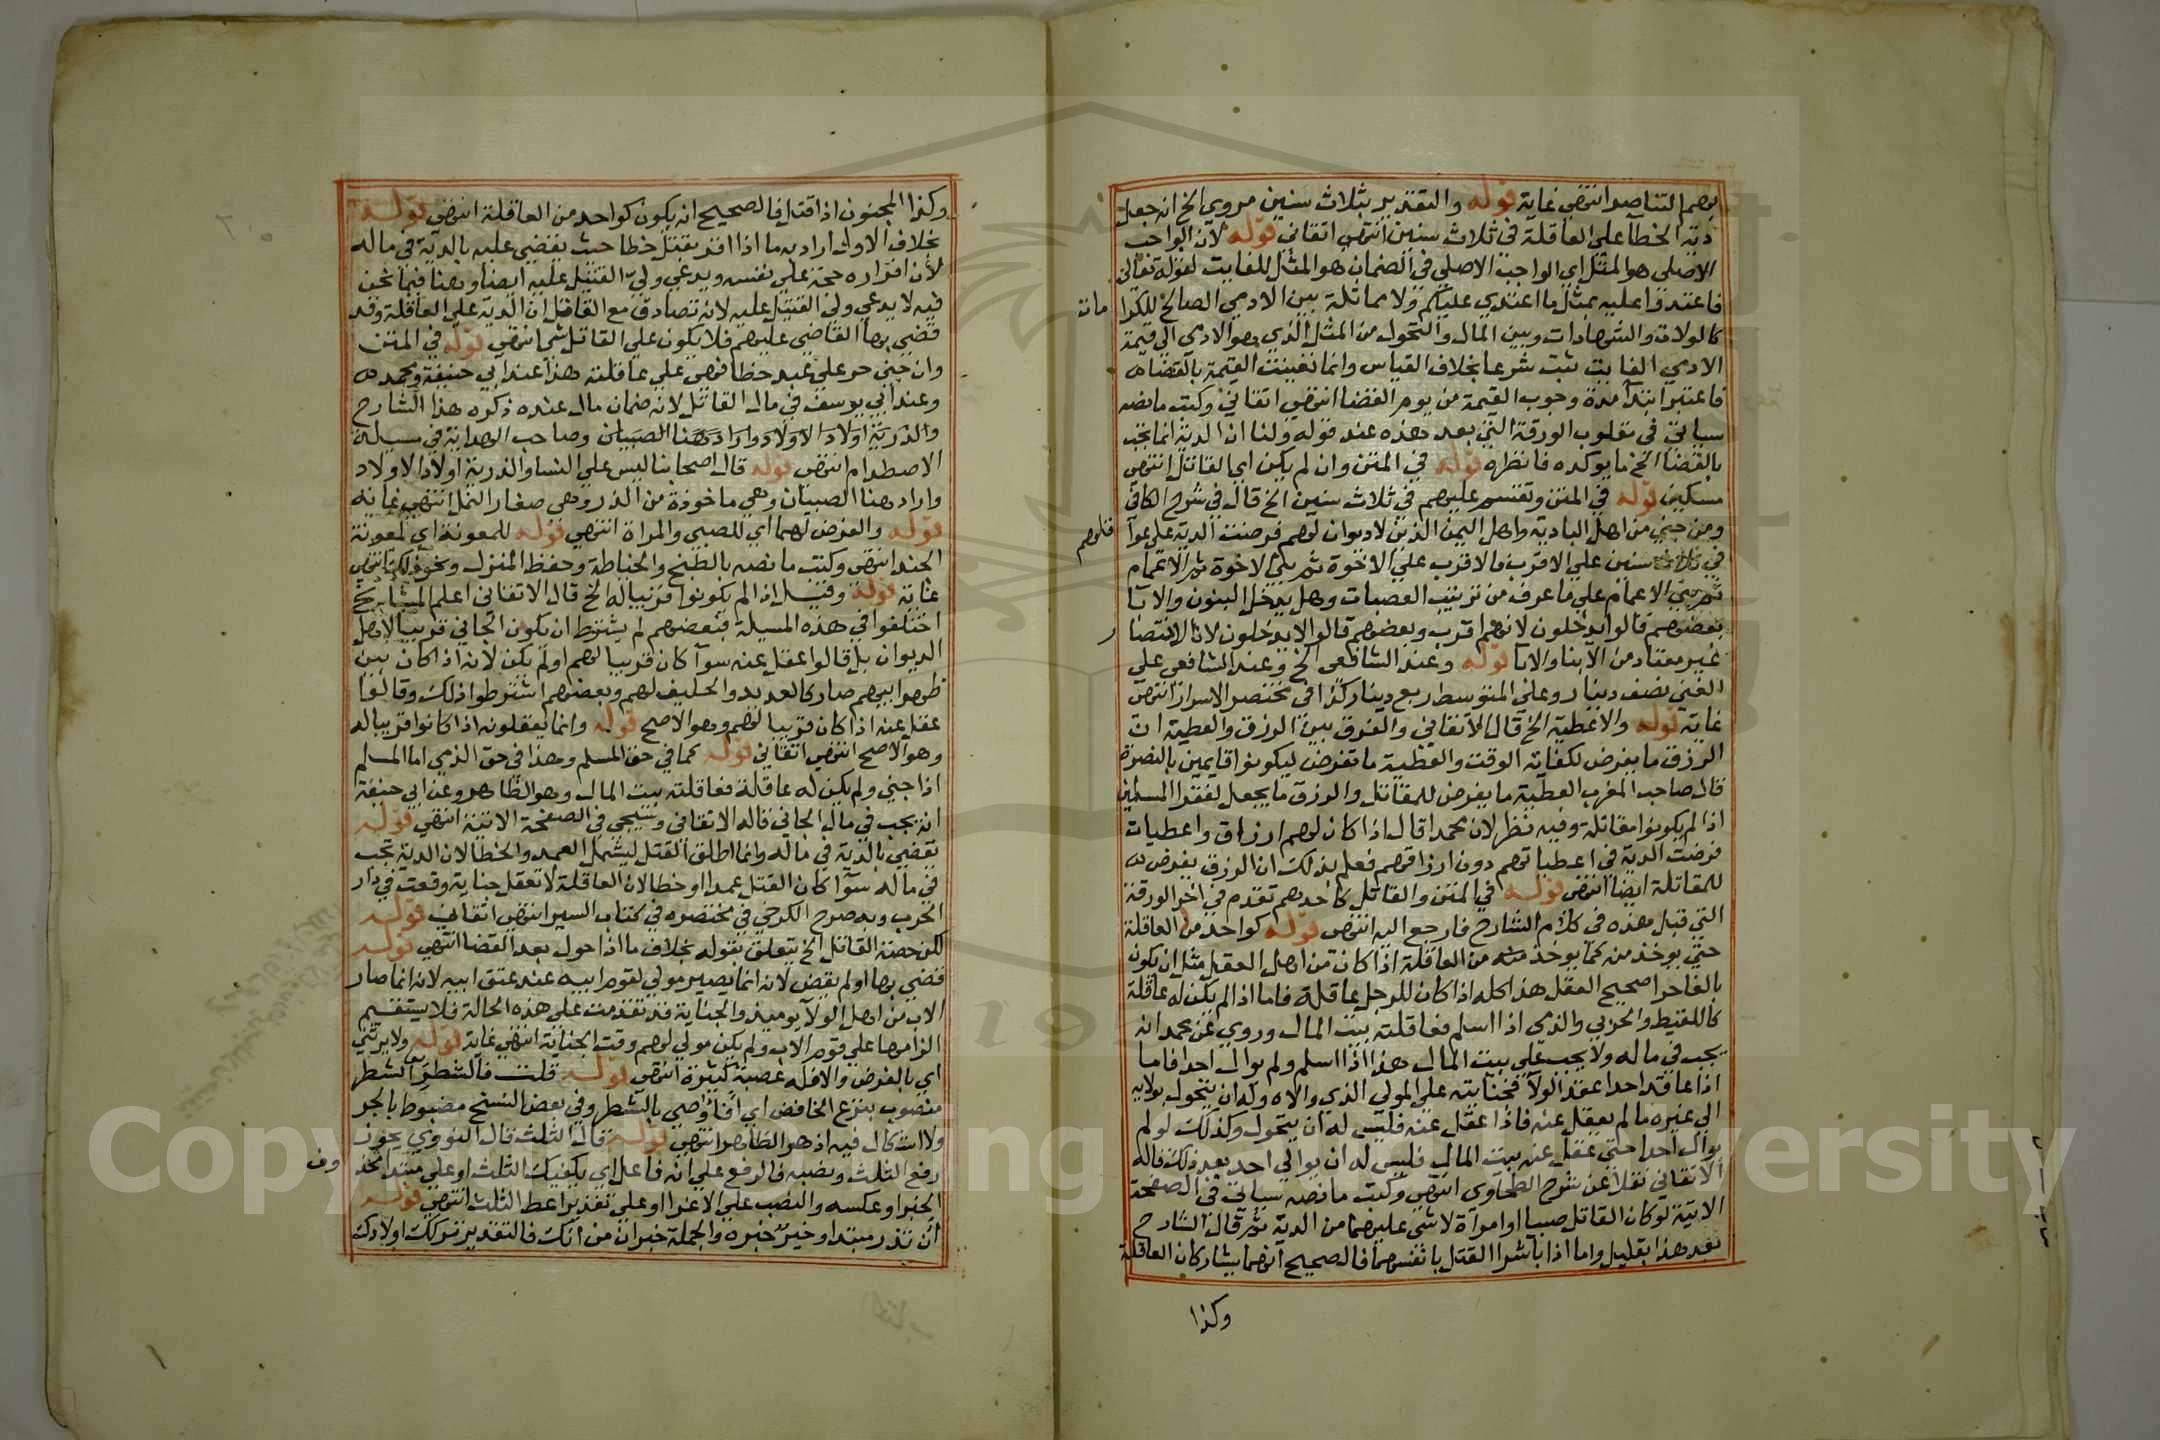 بهم التناصر انتهى غاية قوله والتقدير بثلاث سنين مروي الخ انه جعل
دية الخطأ على العاقلة في ثلاث سنين انتهى اتقاني قوله لان الواجب
الاصلي هو المثل اي الواجب الاصلي في الضمان هو المثل للفايت لقوله تعالى
فاعتدوا عليه بمثل ما اعتدي عليكم ولا مماثلة بين الادمي الصالح للكرا
مات
كالولات والشهادات وبين المال والتحول من المثل الذي هو الادمي الى قيمة
الادمي الفايت ثبت شرعا بخلاف القياس وانما تعينت القيمة بالقضا
فاعتبر ابتدآ مدة وجوب القيمة من يوم القضا انتهى اتقاني وكتب ما نصه
سياتي في مقلوب الورقة التي بعد هذه عند قوله ولنا ان الدية انما تجب
بالقضا الخ ما يوكده فانظره قوله في المتن وان لم يكن اي القاتل انتهى
مسكين قوله في المتن وتقسم عليهم في ثلاث سنين الخ قال في شرح الكافي
ومن جني من اهل البادية واهل اليمن الذين لا ديوان لهم فرضت الدية على عوا
قلهم
في ثلاث سنين على الاقرب فالاقرب على الاخوة ثم بني الاخوة ثم الاعمام
ثم بني الاعمام على ما عرف من ترتيب العصبات وهل يدخل البنون والابا
بعضهم قالوا يدخلون لانهم اقرب وبعضهم قالوا لا يدخلون لان الانتصا
ر
غير معتاد من الابنا والابا قوله وعند الشافعي الخ وعند الشافعي على
الغني نصف دينار وعلى المتوسط ربع دينار كذا في مختصر الاسرار انتهى
غاية قوله والاعطية الخ قال الاتقاني والفرق بين الرزق والعطية ان
الرزق ما يفرض لكفاية الوقت والعطية ما تفرض ليكونوا قايمين بالنصرة
قال صاحب المغرب العطية ما يفرض للمقاتل والرزق ما يجعل لفقرا المسلمين
اذا لم يكونوا مقاتلة وفيه نظر لان محمدا قال اذا كان لهم ارزاق واعطيات
فرضت الدية في اعطياتهم دون ارزاقهم فعلم بذلك ان الرزق يفرض
للمقاتلة ايضا انتهى قوله في المتن والقاتل كاحدهم تقدم في اخر الورقة
التي قبل هذه في كلام الشارح فارجع اليه انتهى قوله كواحد من العاقلة
حتى يوخذ منه كما يوخذ منه من العاقلة اذا كان من اهل العقل مثل ان يكون
بالغا حرا صحيح العقل هذا كله اذا كان للرجل عاقلة فاما اذا لم يكن له عاقلة
كاللقيط والحربي والذمي اذا اسلم فعاقلته بيت المال وروي عن محمد انه
يجب في ماله ولا يجب على بيت المال هذا اذا اسلم ولم يوال احدا فاما
اذا عاقد احدا عقد الولآ فجنايته على المولي الذي والاه وله ان يتحول بولايه
الى غيره ما لم يعقل عنه فاذا عقل عنه فليس له ان يتحول وكذلك لو لم
يوال احدا حتى عقل عنه بيت المال فليس له ان يوالي احد بعد ذلك قاله
الاتقاني نقلا عن شرح الطحاوي انتهى وكتب ما نصه سياتي في الصفحة
الاتية لو كان القاتل صبيا او امراة لا شي عليهما من الدية ثم قال الشارح
بعد هذا بقليل واما اذا باشرا القتل بانفسهما فالصحيح انهما يشاركان العاقلة
وكذا
وكذا المجنون اذا قتل فالصحيح انه يكون كواحد من العاقلة انتهى قوله
بخلاف الاول اراد به ما اذا اقر بقتل خطا حيث يقضي عليه بالدية في ماله
لان اقراره حجة على نفسه ويدعي ولي القتيل عليه ايضا وهنا فيما نحن
فيه لا يدعي ولي القتيل عليه لانه تصادق مع القاتل ان الدية على العاقلة وقد
قضي بها القاضي عليهم فلا يكون على القاتل شي انتهى قوله في المتن
وان جني حر على عبد خطا فهي على عاقلته هذا عند ابي حنيفة ومحمد
وعند ابي يوسف في مال القاتل لانه ضمان مال عنده ذكره هذا الشارح
والذرية اولاد الاولاد واراد هنا الصبيان وصاحب الهداية في مسيلة
الاصطدام انتهى قوله قال اصحابنا ليس على النسا والذرية اولاد الاولاد
واراد هنا الصبيان وهي ماخوذة من الذر وهي صغار النمل انتهى غاية
قوله والفرض لهما اي للصبي والمراة انتهى قوله للمعونة اي لمعونة
الجند انتهى وكتب ما نصه بالطبخ والخياطة وحفظ المنزل ونحو ذلك انتهى
غاية قوله وقيل اذا لم يكونوا قريبا له الخ قال الاتقاني اعلم المشايخ
اختلفوا في هذه المسيلة فبعضهم لم يشترط ان يكون الجاني قريبا لاهل
الديوان بل قالوا عقل عنه سوآ كان قريبا لهم او لم يكن لانه اذا كان بين
ظهرانيهم صار كالعديد والحليف لهم وبعضهم اشترطوا ذلك وقالوا
عقل عنه اذا كان قريبا لهم وهو الاصح قوله وانما يعقلونه اذا كانوا قريبا له
وهو الاصح انتهى اتقاني قوله كما في حق المسلم وهذا في حق الذمي اما المسلم
اذا جني ولم يكن له عاقلة فعاقلته بيت المال وهو الظاهر وعن ابي حنيفة
انه يجب في مال الجاني قاله الاتقاني وسيجي في الصفحة الاتية انتهى قوله
نقضي بالدية في ماله وانما اطلق القتل ليشمل العمد والخطا لان الدية تجب
في ماله سوآ كان القتل عمدا او خطا لان العاقلة لا تعقل جناية وقعت في دار
الحرب وبه صرح الكرخي في مختصره في كتاب السير انتهى اتقاني قوله
لكن حصة القاتل الخ يتعلق بقوله بخلاف ما اذا حول بعد القضا انتهى قوله
قضي بها او لم يقض لانه انما يصير مولي لقوم ابيه عند عتق ابيه لانه انما صار
الاب من اهل الولآ يوميذ والجناية قد تقدمت على هذه الحالة فلا يستقيم
الزامها على قوم الاب ولم يكن مولي لهم وقت الجناية انتهى غاية قوله ولا يرثني
اي بالفرض والا فله عصبة كثيرة انتهى قوله قلت فالشطر الشطر
منصوب بنزع الخافض اي افاوصي بالشطر وفي بعض النسخ مضبوط بالجر
ولا اشكال فيه اذ هو الظاهر انتهى قوله قال الثلث قال النووي يجوز
رفع الثلث ونصبه فالرفع على انه فاعل اي يكفيك الثلث او على مبتدا محذ
وف
الخبر او عكسه والنصب على الاغرا او على تقدير اعط الثلث انتهى قوله
ان تذر مبتدا وخير خبره والجملة خبر ان من انك فالتقدير تركك اولادك
Copyright © King Saud University
1957